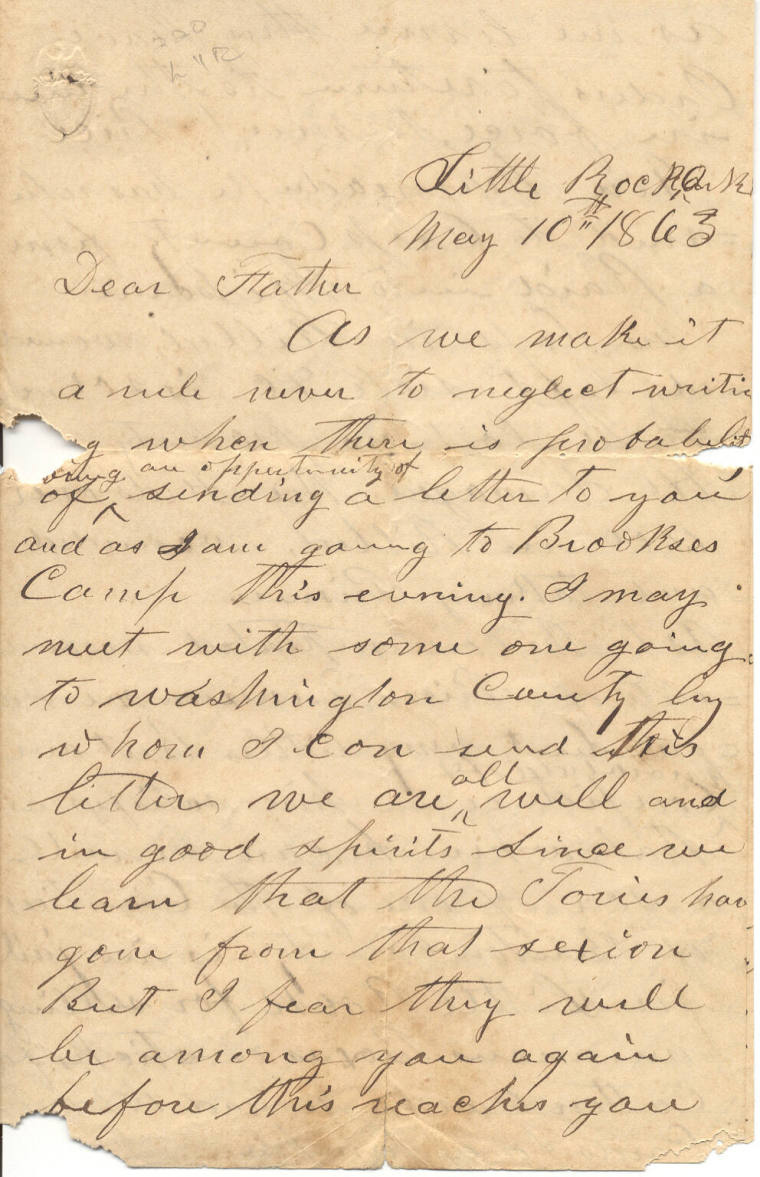 Little Rock Ark
May 10th 1863
Dear Father
As we make it
a rule never to neglect writi
ng when there is probabilit
of ^ sending a letter to you
having an oppertunity of
and as I am going to Brookses
Camp this evening. I may
meet with some one going
to washington County by
whom I con send this
letter we are ^ all well and
in good spirits since we
learn that the Tories hav
gone from that sexion
But I fear they will
be among you again
before this reaches you